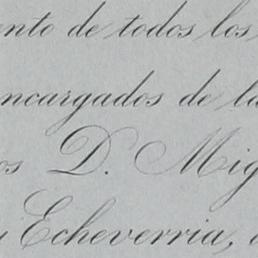 ento de todos los
ncargados de la
os D. Mig
i Echeverria,